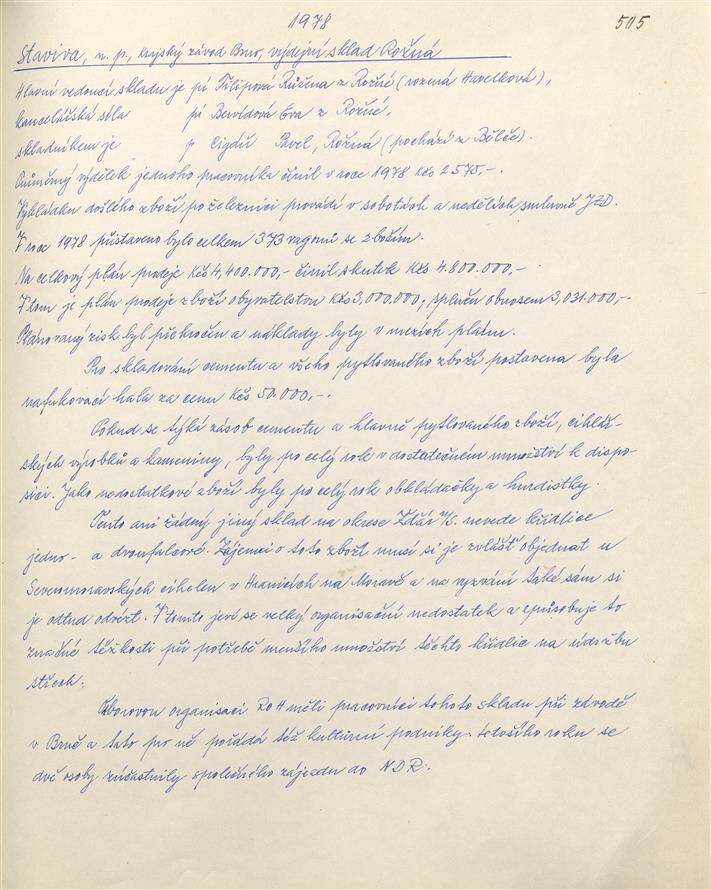 1978 505
Staviva, n. p., krajský závod Brno, výdejní sklad Rožná
Hlavní vedoucí skladu je pí Filipová Růžena z Rožné (rozená Havelková),
kancelářská síla pí Beroldová Eva z Rožné,
skladníkem je p Cigdů , Rožná (pochází z ).
Průměrný výdělek jednoho pracovníka činil v roce 1978 Kčs 2575,-.
Vykládku došlého zboží po železnici provádí v sobotách a nedělích smluvně JZD.
V roce 1978 přistaveno bylo celkem 373 vagonů se zbožím.
Na celkový plán prodeje Kčs 4,400.000,- činil skutek Kčs 4.800.000,-
V tom je plán prodeje zboží obyvatelstvu Kčs 3,000.000; splněn obnosem 3,031.000,-.
Plánovaný zisk byl překročen a náklady byly v mezích plánu.
Pro skladování cementu a všeho pytlovaného zboží postavena byla
nafukovací hala za cenu Kčs 50.000,-.
Pokud se týká zásob cementu a hlavně pytlovaného zboží, cihlář-
ských výrobků a kameniny, byly po celý rok v dostatečném množství k dispo-
sici. Jako nedodatkové zboží byly po celý rok obkládačky a hurdistky.
Tento ani žádný jiný sklad na okrese Žďár n/S. nevede křidlice
jedno- a dvoufalcové. Zájemci o toto zboží musí si je zvlášť objednat u
Severomoravských cihelen v Hranicích na Moravě a na vyzvání také sám si
je odtud odvézt. V tomto jeví se velký organisační nedostatek a způsobuje to
značné těžkosti při potřebě menšího množství těchto křidlic na údržbu
střech.
Odborovou organisaci ROH měli pracovníci tohoto skladu při závodě
v Brně a tato pro ně pořádá též kulturní podniky. Letošího roku se
dvě osoby zúčastnily společného zájezdu do NDR.